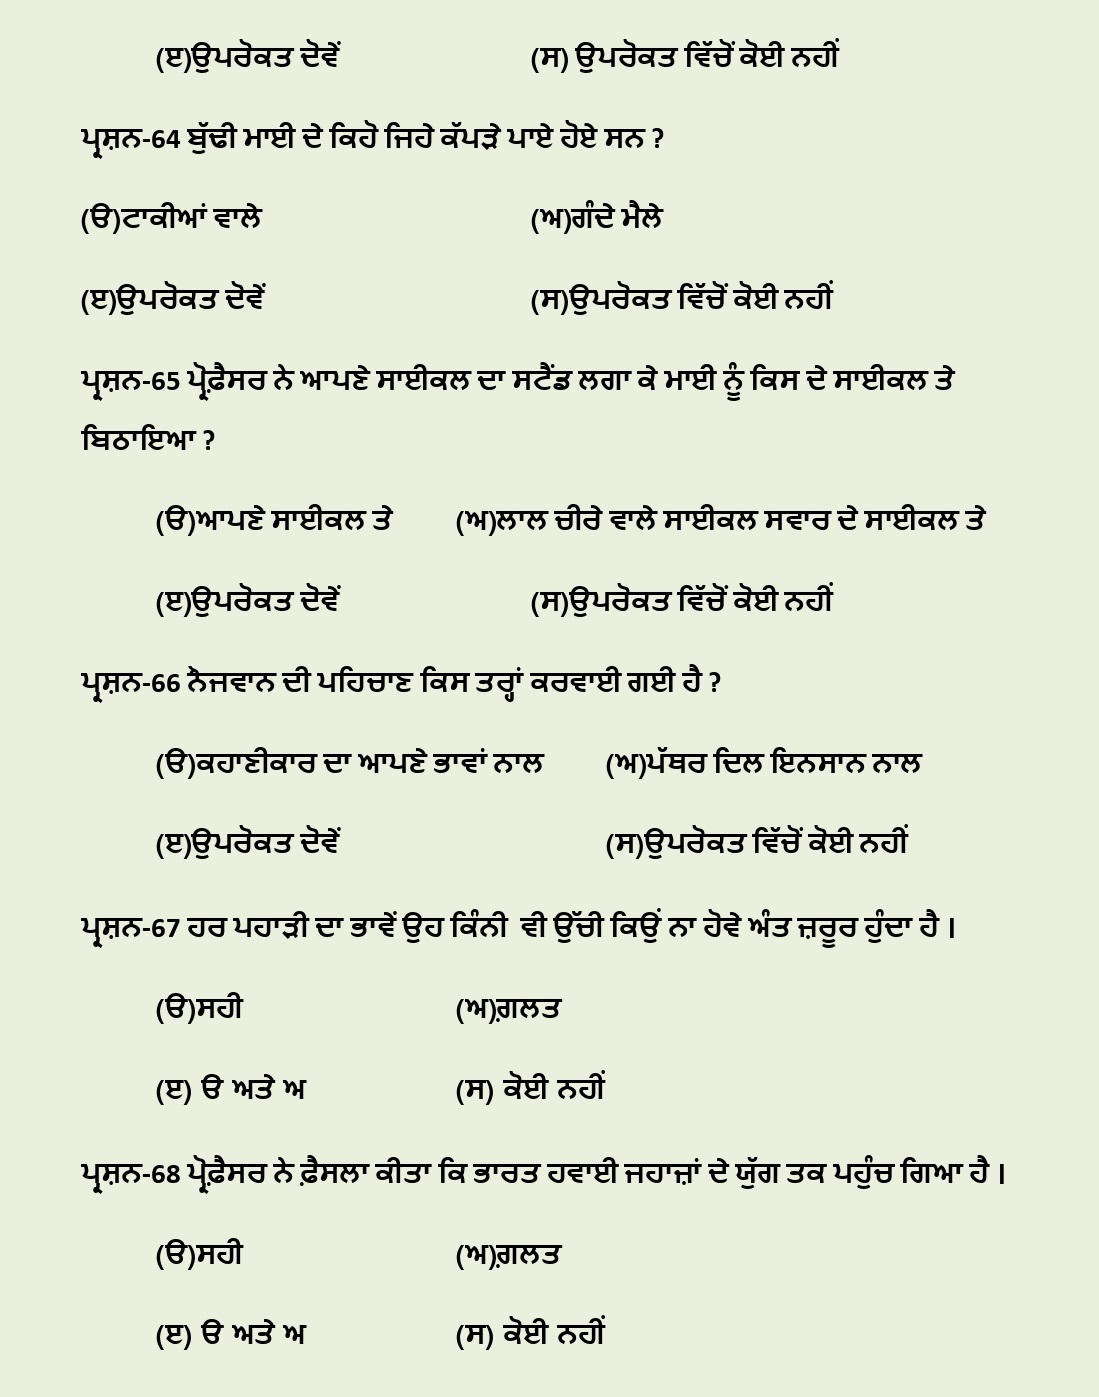 (ੲ)ਉਪਰੋਕਤ ਦੋਵੇਂ (ਸ) ਉਪਰੋਕਤ ਵਿੱਚੋਂ ਕੋਈ ਨਹੀਂ
ਪ੍ਰਸ਼ਨ-64 ਬੁੱਢੀ ਮਾਈ ਦੇ ਕਿਹੋ ਜਿਹੇ ਕੱਪੜੇ ਪਾਏ ਹੋਏ ਸਨ ?
(ੳ)ਟਾਕੀਆਂ ਵਾਲੇ (ਅ)ਗੰਦੇ ਮੈਲੇ
(ੲ)ਉਪਰੋਕਤ ਦੋਵੇਂ (ਸ)ਉਪਰੋਕਤ ਵਿੱਚੋਂ ਕੋਈ ਨਹੀਂ
ਪ੍ਰਸ਼ਨ-65 ਪ੍ਰੋਫ਼ੈਸਰ ਨੇ ਆਪਣੇ ਸਾਈਕਲ ਦਾ ਸਟੈਂਡ ਲਗਾ ਕੇ ਮਾਈ ਨੂੰ ਕਿਸ ਦੇ ਸਾਈਕਲ ਤੇ
ਬਿਠਾਇਆ ?
(ੳ)ਆਪਣੇ ਸਾਈਕਲ ਤੇ (ਅ)ਲਾਲ ਚੀਰੇ ਵਾਲੇ ਸਾਈਕਲ ਸਵਾਰ ਦੇ ਸਾਈਕਲ ਤੇ
(ੲ)ਉਪਰੋਕਤ ਦੋਵੇਂ (ਸ)ਉਪਰੋਕਤ ਵਿੱਚੋਂ ਕੋਈ ਨਹੀਂ
ਪ੍ਰਸ਼ਨ-66 ਨੌਜਵਾਨ ਦੀ ਪਹਿਚਾਣ ਕਿਸ ਤਰ੍ਹਾਂ ਕਰਵਾਈ ਗਈ ਹੈ ?
(ੳ)ਕਹਾਣੀਕਾਰ ਦਾ ਆਪਣੇ ਭਾਵਾਂ ਨਾਲ (ਅ)ਪੱਥਰ ਦਿਲ ਇਨਸਾਨ ਨਾਲ
(ੲ)ਉਪਰੋਕਤ ਦੋਵੇਂ (ਸ)ਉਪਰੋਕਤ ਵਿੱਚੋਂ ਕੋਈ ਨਹੀਂ
ਪ੍ਰਸ਼ਨ-67 ਹਰ ਪਹਾੜੀ ਦਾ ਭਾਵੇਂ ਉਹ ਕਿੰਨੀ ਵੀ ਉੱਚੀ ਕਿਉਂ ਨਾ ਹੋਵੇ ਅੰਤ ਜ਼ਰੂਰ ਹੁੰਦਾ ਹੈ ।
(ੳ)ਸਹੀ (ਅ)ਗ਼ਲਤ
(ੲ) ੳ ਅਤੇ ਅ (ਸ) ਕੋਈ ਨਹੀਂ
ਪ੍ਰਸ਼ਨ-68 ਪ੍ਰੋਫ਼ੈਸਰ ਨੇ ਫ਼ੈਸਲਾ ਕੀਤਾ ਕਿ ਭਾਰਤ ਹਵਾਈ ਜਹਾਜ਼ਾਂ ਦੇ ਯੁੱਗ ਤਕ ਪਹੁੰਚ ਗਿਆ ਹੈ ।
(ੳ)ਸਹੀ (ਅ)ਗ਼ਲਤ
(ੲ) ੳ ਅਤੇ ਅ (ਸ) ਕੋਈ ਨਹੀਂ